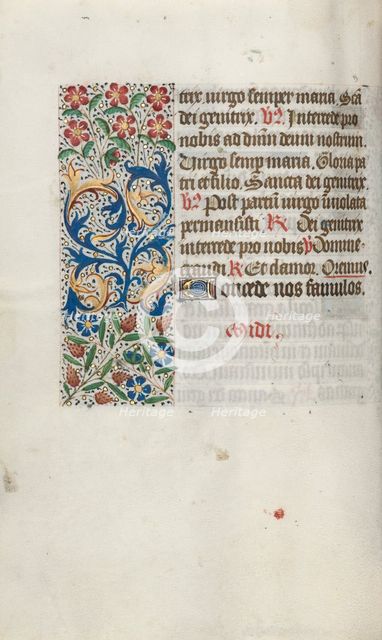 trix virgo semper maria. Scā
dei genitrix. V̄. Intercede pro
nobis ad dn̄m deum nostrum.
Virgo semp maria. Gloria pa
tri et filio. Sancta dei genitrix.
V̄. Post partum virgo inviolata
permansisti. R Dei genitrix
intercede pro nobis. V Domine
exaudi R Et clamor. Oremus.
Concede nos famulos.
Midi.
Heritage
Heritage
Heritage
Heritage